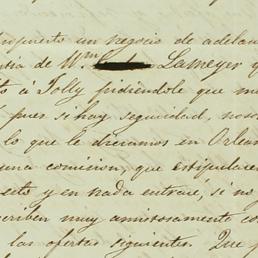 propuesto un negocio de adelan
tia de Wm Lameyer y
to á Jolly pidiendole que me
pues si hay seguridad, noso
lo que le dieramos en Orlean
una comision, que estipulare
esto y en nada entrare, si no
criben muy amistosamente co
las ofertas siguientes. Que p